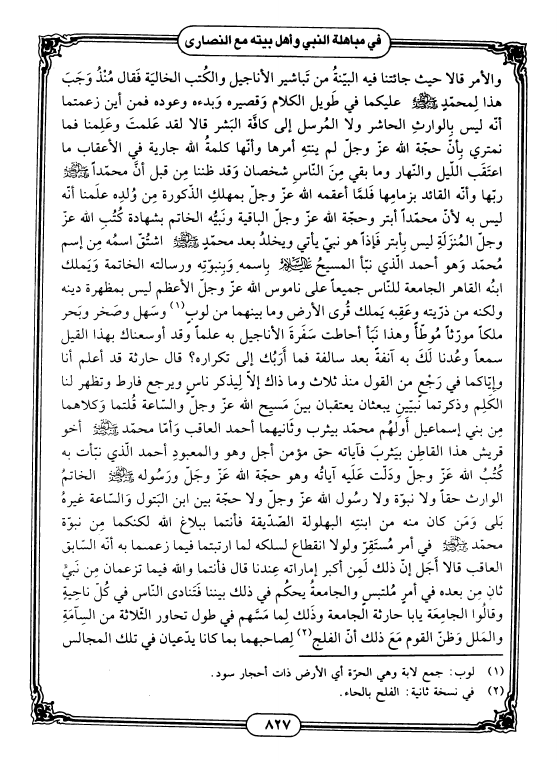 في مباهلة النبي وأهل بيته مع النصارى
والأمر قالا حيث جائتنا فيه البيّنةُ من تباشير الأناجيل والكُتب الخالية فَقال مُنْذُ وَجَبَ
هذا لِمحمّدٍ ﷺ عليكما في طَويل الكلام وَقصيره وَبدءه وعوده فمن أين زعمتما
أنّه ليس بِالوارثِ الحاشر ولا المُرسل إلى كافَّة البَشر قالا لقد عَلمتَ وعَلِمنا فما
نمتري بأنّ حجّة الله عزّ وجلّ لم ينتهِ أمرها وأنّها كلمةُ الله جارية في الأعقاب ما
اعتَقب اللّيل والنّهار وما بقي مِنَ النّاسِ شخصان وَقد ظننا مِن قبل أنَّ محمّداً ﷺ
ربّها وأنّه القائد بزمامِها فَلمَّا أعقمه الله عزّ وجلّ بمهلكِ الذّكورة مِن وُلدِه علَمنا أنّه
ليس به لأنّ محمّداً أبتر وحجّة الله عزّ وجلّ الباقية ونَبيُّه الخاتم بشهادة كُتُبِ الله عزّ
وجلّ المُنزَلَةِ ليس بِأبتر فَإذاً هو نبيّ يأتي ويخلدُ بعد محمّدٍ ﷺ اشتُقّ اسمُه مِن إسم
مُحمّد وَهو أحمد الّذي نبّأ المسيحُ عليه السلام بِاسمه وَبِنبوّتِه ورسالته الخاتمة وَيَملك
ابنُه القاهر الجامعة للنّاس جميعاً على ناموس الله عزّ وجلّ الأعظم ليس بمظهرة دينه
ولكنه من ذرّيته وعَقِبه يَملك قُرى الأرض وما بينهما من لوبٍ(١) وسَهل وصَخر وبَحر
ملكاً مورّثاً موُطّأً وهذا نَبَأ أحاطت سَفَرة الأناجيل به علماً وقد أوسعناك بهذا القيل
سمعاً وعُدنا لكَ به آنفةً بعد سالفة فما أرَبُك إلى تكراره؟ قال حارثة قد أعلم أنا
وإيّاكما في رَجْعٍ من القول منذ ثلاث وما ذاك إلّا لِيذكر ناسٍ ويرجع فارط وتظهر لنا
الكَلِم وذكرتما نَبيّينِ يبعثان يعتقبان بينَ مَسيح الله عزّ وجلّ والسّاعة قُلتما وكلاهما
مِن بني إسماعيل أولهُم محمّد بيثرب وثَانيهما أحمد العاقب وَأمّا محمّد ﷺ أخو
قريش هذا القاطِن بيَثربَ فآياته حق مؤمن أجل وهو والمعبودِ أحمد الّذي نبّأت به
كُتُبُ الله عَزّ وجلّ ودَلّت عَلَيه آياتُه وهو حجّة الله عَزَ وجَلّ ورَسُوله ﷺ الخاتمُ
الوارث حقاً ولا نبوّة ولا رسول الله عزّ وجلّ ولا حجّة بين ابن البَتول وَالسّاعة غيرهُ
بَلى وَمَن كان منه من ابنتِه البهلولة الصّدّيقة فأنتما ببلاغ الله لكنكما مِن نبوّة
محمّد ﷺ في أمر مُستَقِرّ ولولا انقطاع لسلكه لما ارتبتما فيما زعمتما به أنّه السابق
العاقب قالا أجَل إنّ ذلك لَمِن أكبر إماراته عِندنا قال فأنتما والله فيما تزعمان مِن نَبيٍّ
ثانٍ مِن بعده في أمرٍ مُلتبس والجامعةُ يحكُم في ذلك بيننا فَتَنادى النّاس في كُلّ ناحيةٍ
وقالُوا الجامِعَة يابا حارثة الجامعة وذَلك لِما مَسَّهم في طول تحاور الثّلاثة من السآمَةِ
والمَلل وظَنّ القوم مَعَ ذلك أنّ الفلج(٢) لِصاحبهما بما كانا يدّعيان في تلك المجالس
(١) لوب: جمع لابة وهي الحرّة أي الأرض ذات أحجار سود.
(٢) في نسخة ثانية: الفلح بالحاء.
٨٢٧